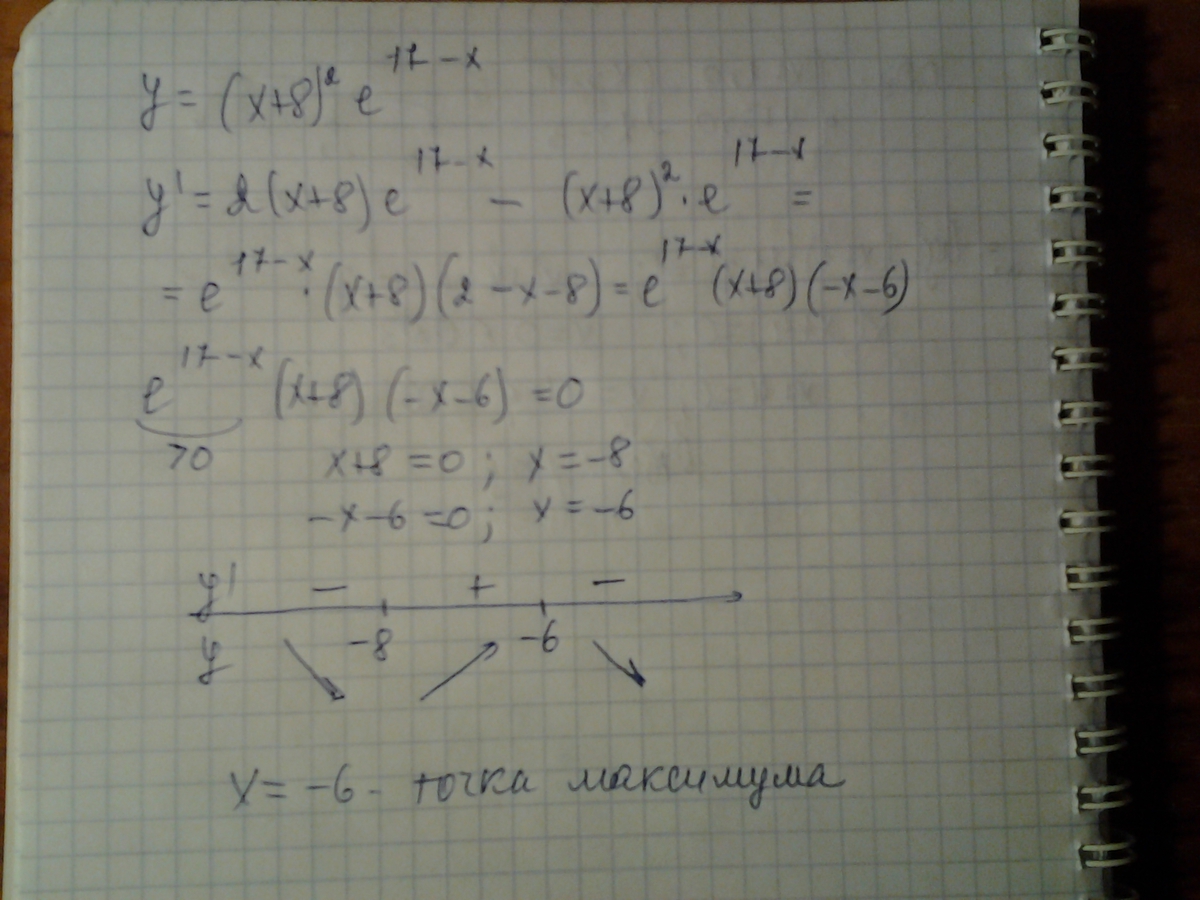 y = (x+8)² e^(17-x)
y' = 2(x+8) e^(17-x) - (x+8)² · e^(17-x) =
= e^(17-x) · (x+8)(2-x-8) = e^(17-x) (x+8)(-x-6)
e^(17-x) (x+8) (-x-6) = 0
>0 x+8 = 0 ; x = -8
-x-6 = 0 ; x = -6
y' - + -
y -8 -6
x = -6 - точка максимума